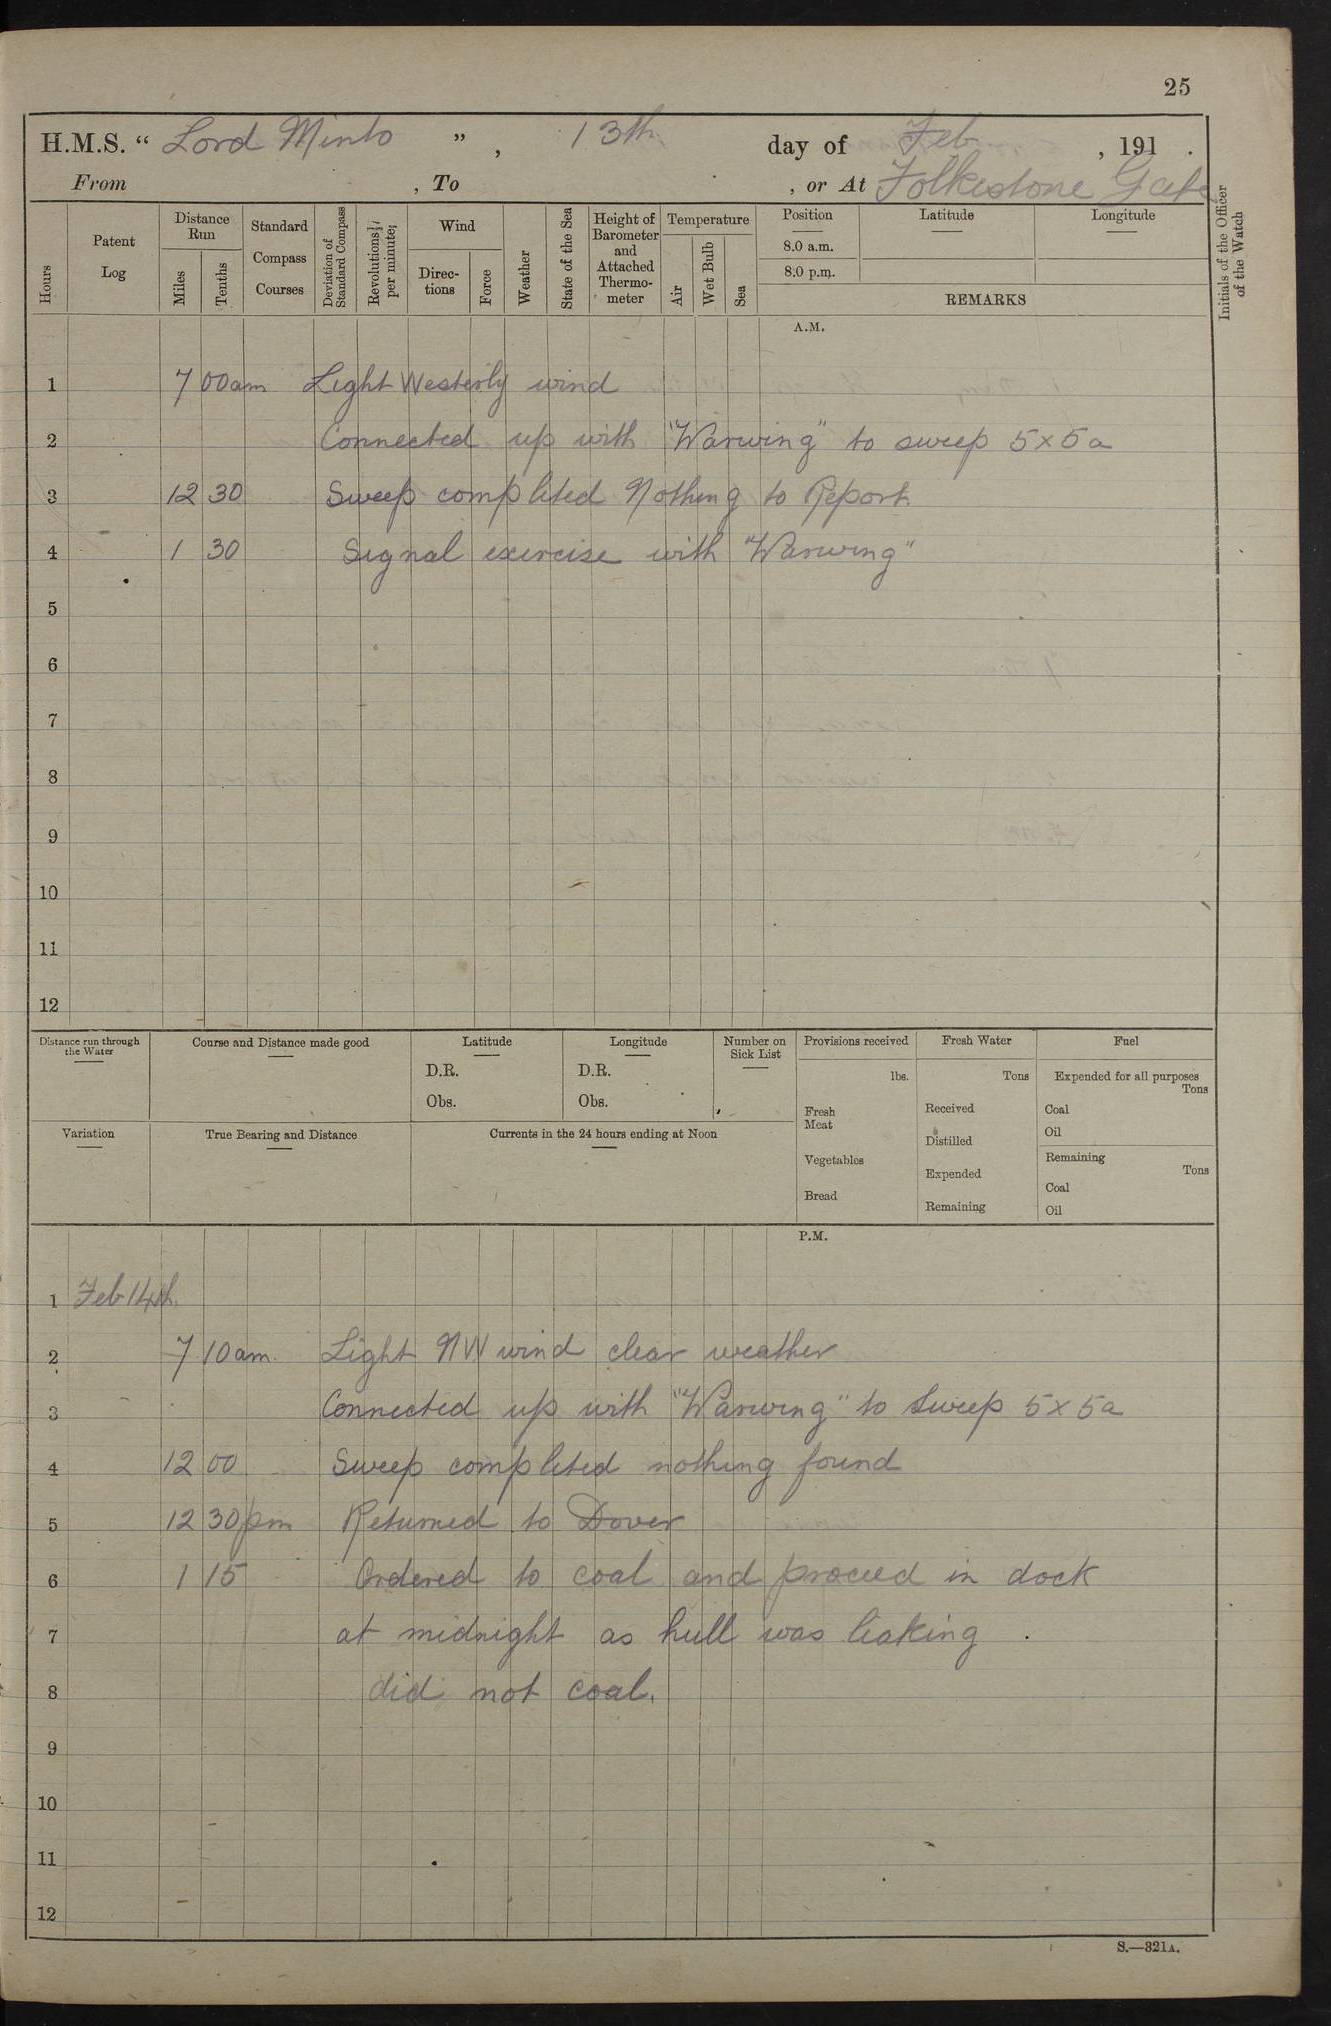 25
H.M.S. “ Lord Minto ” , 13th day of Feb , 191 .
From , To , or At Folkestone Gate
Hours
Patent Log
Distance Run
Miles
Tenths
Standard Compass Courses
Deviation of Standard Compass
Revolutions per minute
Wind
Directions
Force
Weather
State of the Sea
Height of Barometer and Attached Thermometer
Temperature
Air
Wet Bulb
Sea
Position
8.0 a.m.
8.0 p.m.
Latitude
Longitude
REMARKS
Initials of the Officer of the Watch
A.M.
1 7 00am Light Westerly wind
2 Connected up with "Warwing" to sweep 5 x 5a
3 12 30 Sweep completed Nothing to Report
4 1 30 Signal exercise with "Warwing"
5
6
7
8
9
10
11
12
Distance run through the Water
Course and Distance made good
Latitude
D.R.
Obs.
Longitude
D.R.
Obs.
Number on Sick List
Provisions received
lbs.
Fresh Meat
Vegetables
Bread
Fresh Water
Tons
Received
Distilled
Expended
Remaining
Fuel
Expended for all purposes
Tons
Coal
Oil
Remaining
Tons
Coal
Oil
Variation
True Bearing and Distance
Currents in the 24 hours ending at Noon
P.M.
1 Feb 14th
2 7 10am. Light NW wind clear weather
3 Connected up with "Warwing" to Sweep 5 x 5a
4 12 00 Sweep completed nothing found
5 12 30pm Returned to Dover
6 1 15 Ordered to coal and proceed in dock
7 at midnight as hull was leaking .
8 did not coal.
9
10
11
12
S.—321A.